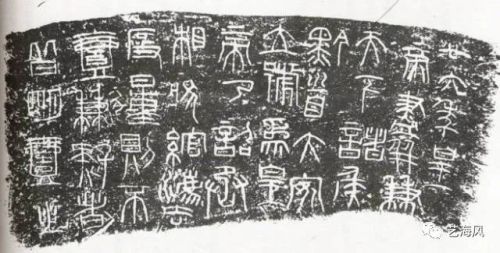 廿六年皇
帝盡并兼
天下諸侯
黔首大安
立號爲皇
帝乃詔丞
相狀綰灋
度量則不
壹歉疑者
皆明壹之
艺海风